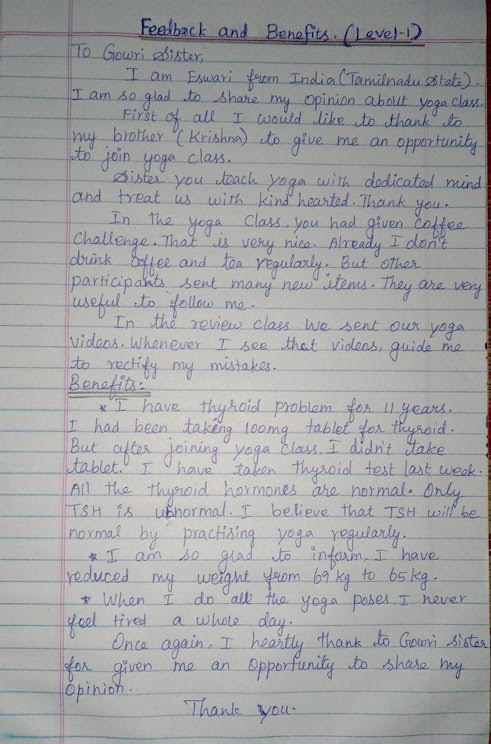 Feedback and Benefits. (Level-1)
To Gowri Sister,
I am Eswari from India (Tamilnadu State).
I am so glad to share my opinion about yoga class.
First of all I would like to thank to
my brother (Krishna) to give me an opportunity
to join yoga class.
Sister you teach yoga with dedicated mind
and treat us with kind hearted. Thank you.
In the yoga class, you had given coffee
challenge. That is very nice. Already I don't
drink coffee and tea regularly. But other
participants sent many new items. They are very
useful to follow me.
In the review class we sent our yoga
videos. Whenever I see that videos, guide me
to rectify my mistakes.
Benefits:-
* I have thyroid problem for 11 years.
I had been taking 100mg tablet for thyroid.
But after joining yoga class, I didn't take
tablet. I have taken thyroid test last week.
All the thyroid hormones are normal. Only
TSH is abnormal. I believe that TSH will be
normal by practising yoga regularly.
* I am so glad to inform, I have
reduced my weight from 69 kg to 65 kg.
* When I do all the yoga poses, I never
feel tired a whole day.
Once again, I heartly thank to Gowri Sister
for given me an Opportunity to share my
Opinion.
Thank you.